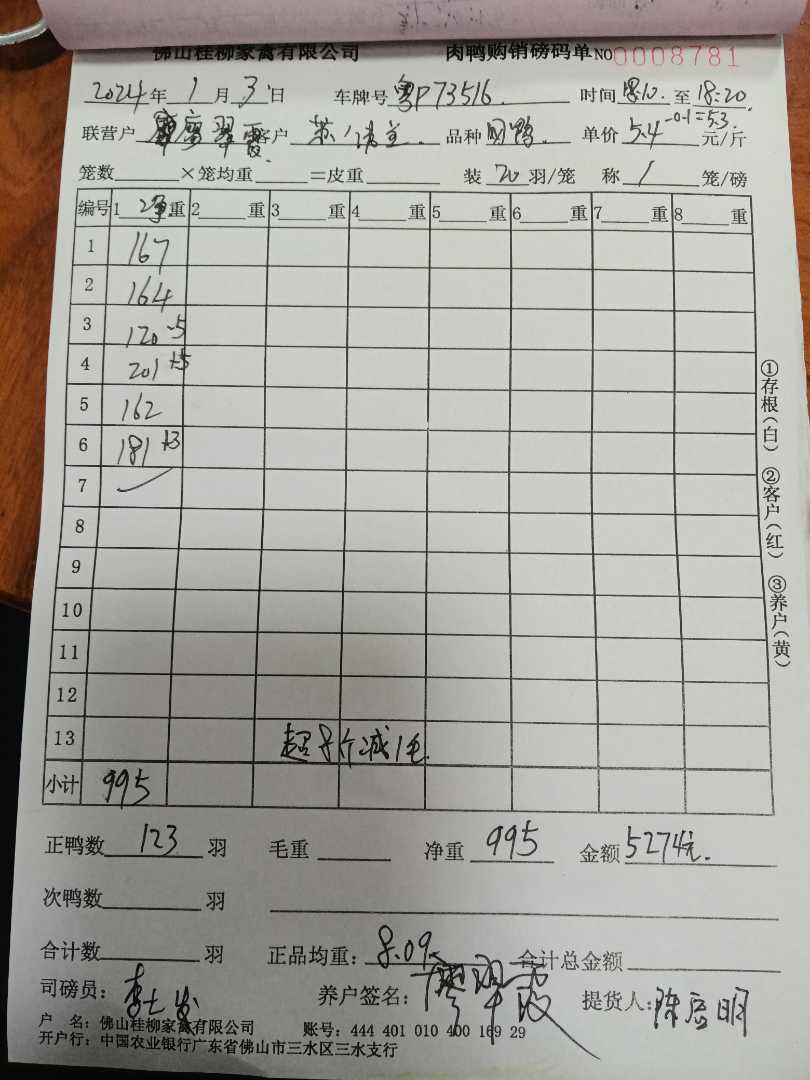 佛山桂柳家禽有限公司 肉鸭购销磅码单 NO 0008781
2024年1月3日 车牌号 粤P73516 时间 至 18:20
联营户 翠霞 客户 苏 品种 肉鸭 单价 5.4 -0.1=5.3 元/斤
笼数 ×笼均重 =皮重 装 20 羽/笼 称 1 笼/磅
编号 1 净重 2 重 3 重 4 重 5 重 6 重 7 重 8 重
1 167
2 164
3 120 -5
4 201 +5
5 162
6 181 +3
7
8
9
10
11
12
13 超8斤减1毛
小计 995
正鸭数 123 羽 毛重 净重 995 金额 5274元.
次鸭数 羽
合计数 羽 正品均重: 8.09 合计总金额
司磅员: 李 养户签名: 廖翠霞 提货人: 陈 明
户 名: 佛山桂柳家禽有限公司 账号: 444 401 010 400 169 29
开户行: 中国农业银行广东省佛山市三水区三水支行
①存根(白) ②客户(红) ③养户(黄)